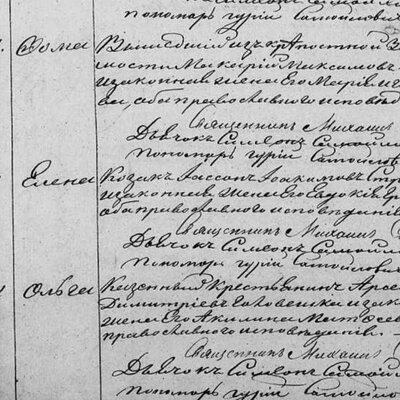 пономарь Гурій Самойлович
Ѳома Вышедшій изъ крѣпостной З
мости Макарій Максимовъ
и законная жена его Марія
ва, оба православнаго исповѣд
Священникъ Михаилъ
Дьячокъ Симеонъ Самойло
пономарь Гурій Самойлов
Елена Козакъ Іассонъ Іоакимовъ
и законная жена его Евдокія
оба православнаго исповѣданія
Священникъ Михаилъ
Дьячокъ Симеонъ Самойло
пономарь Гурій Самойлович
Ольга Казенный крестьянинъ Арсе
Димитріевъ Головенко и зак
жена его Акилина Матѳеев
православнаго исповѣданія.
Священникъ Михаилъ
Дьячокъ Симеонъ Самой
пономарь Гурій Самойло